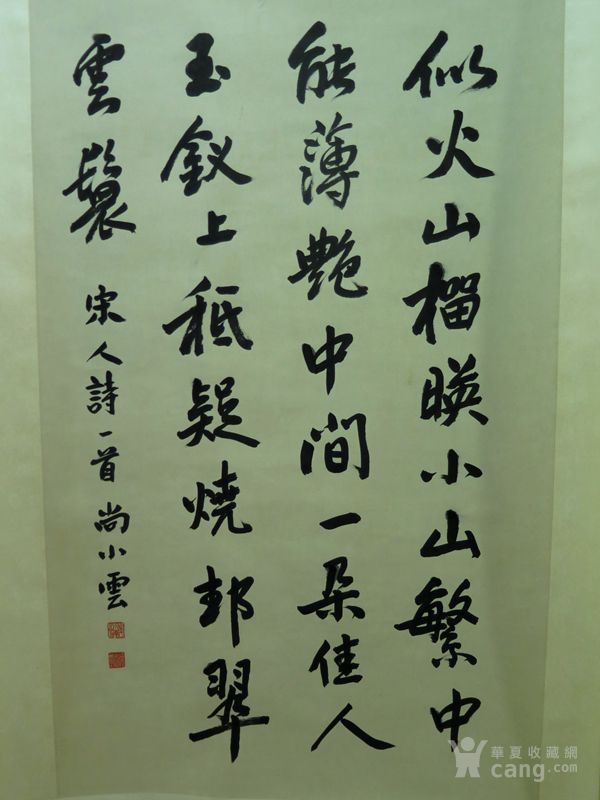 似火山榴暎小山繁中
能薄艶中間一朵佳人
玉釵上秪疑燒却翠
雲鬟
宋人詩一首 尚小雲
華夏收藏網
cang.com